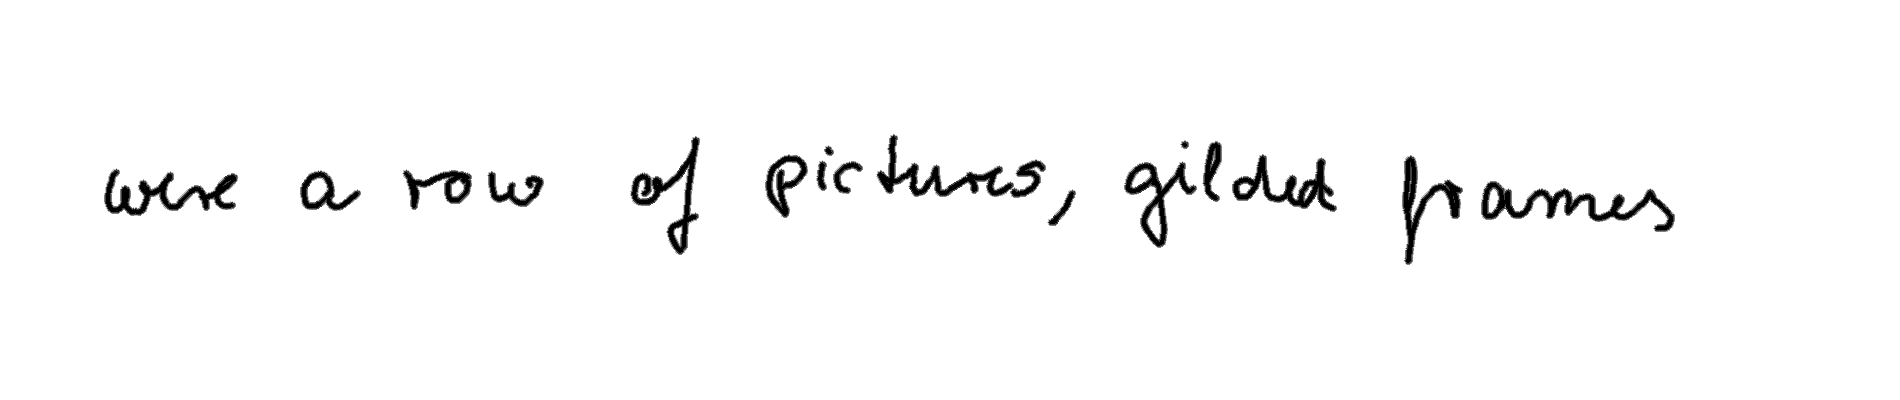 were a row of pictures, gilded frames